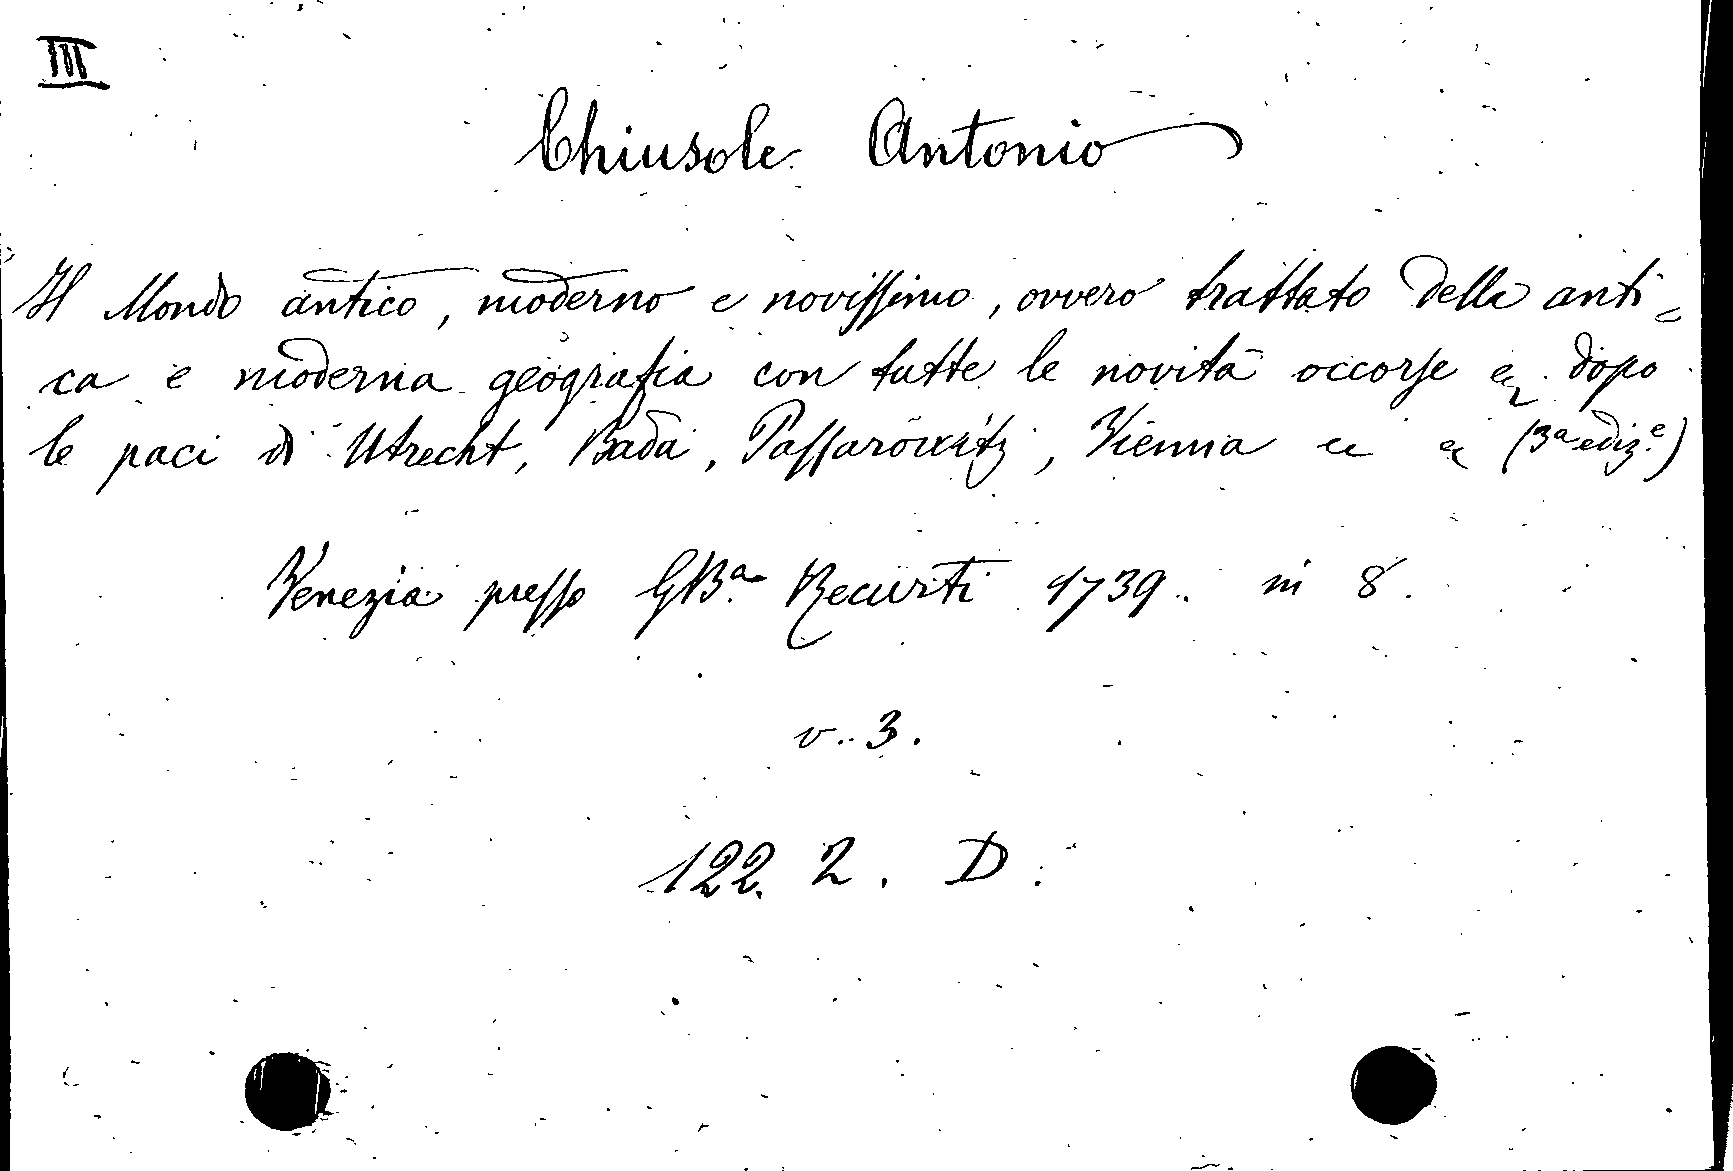 III
Chiusole Antonio
Il Mondo antico, moderno e novissimo, ovvero trattato della anti=
ca e moderna geografia con tutte le novità occorse dopo
le paci di Utrecht, Bada, Passarowitz, Vienna (3ª ediz.e)
Venezia presso GBª Recurti 1739. in 8.
v. 3.
122. 2. D.